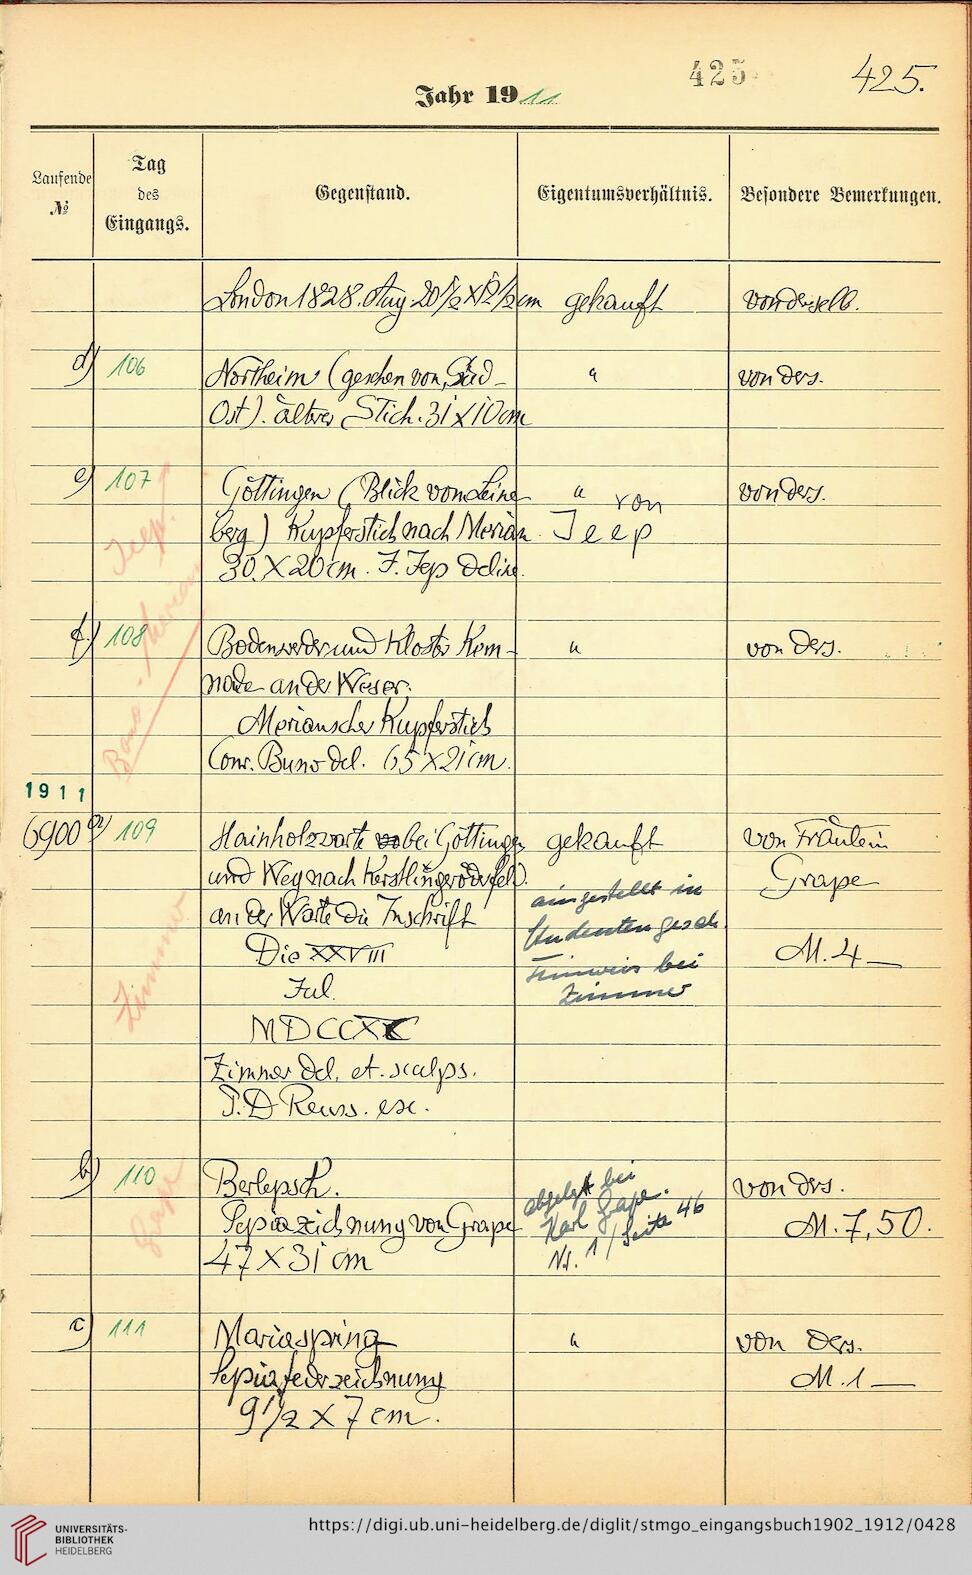 425
425.
Jahr 1911
Laufende
№
Tag
des
Eingangs.
Gegenstand.
Eigentumsverhältnis.
Besondere Bemerkungen.
London 1828. Aug 20½ X 12½ cm gekauft von derselb.
d) 106 Northeim (gesehen von Süd- " von ders.
Ost). älterer Stich. 31 X 10 cm
e) 107 Göttingen (Blick vom Leine- " von von ders.
berg) Kupferstich nach Merian. Jeep
30 X 20 cm. J. Jep delin.
Jeep.
f.) 108 Bodenwerder und Kloster Kem- " von ders.
nade an der Weser.
Merianscher Kupferstich
Conr. Buno del. 65 X 21 cm.
Buno - Merian
1911
6900 a) 109 Hainholzwarte bei Göttingen gekauft von Fräulein
und Weg nach Kerstlingeröderfeld. Grape
an der Warte die Inschrift
eingestellt in
Studentengesch.
Die XXVIII M. 4 —
Hinweis bei
Zimmer
Jul.
MDCCXC
Zimmer
Zimmer del. et. scalps.
P. D Reuss. exc.
b) 110 Berlepsch. von ders.
abgelegt bei
Karl Grape.
Nr. 1 / Seite 46
Sepiazeichnung von Grape M. 7,50.
47 X 31 cm
Grape
c) 111 Mariaspring " von ders.
Sepiafederzeichnung M. 1 —
9½ X 7 cm.
UNIVERSITÄTS-
BIBLIOTHEK
HEIDELBERG
https://digi.ub.uni-heidelberg.de/diglit/stmgo_eingangsbuch1902_1912/0428